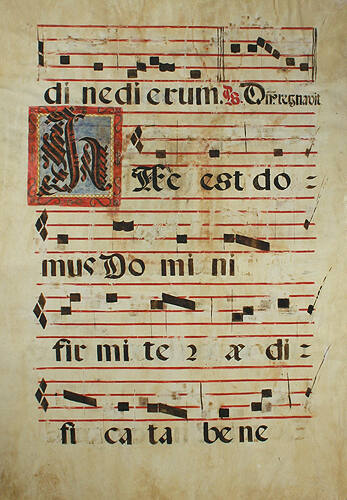 di nedierum. Ps. Dñs regnavit
HAec est do=
mus Do mi ni
fir mi te r æ di=
fi ca ta bene